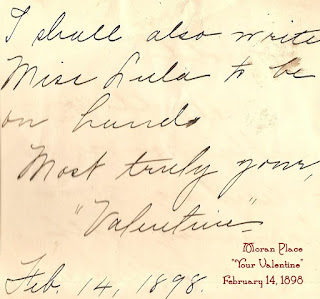 I shall also write
Miss Lula to be
on hand.
Most truly your,
"Valentine"
Feb. 14, 1898.
Moran Place
"Your Valentine"
February 14, 1898